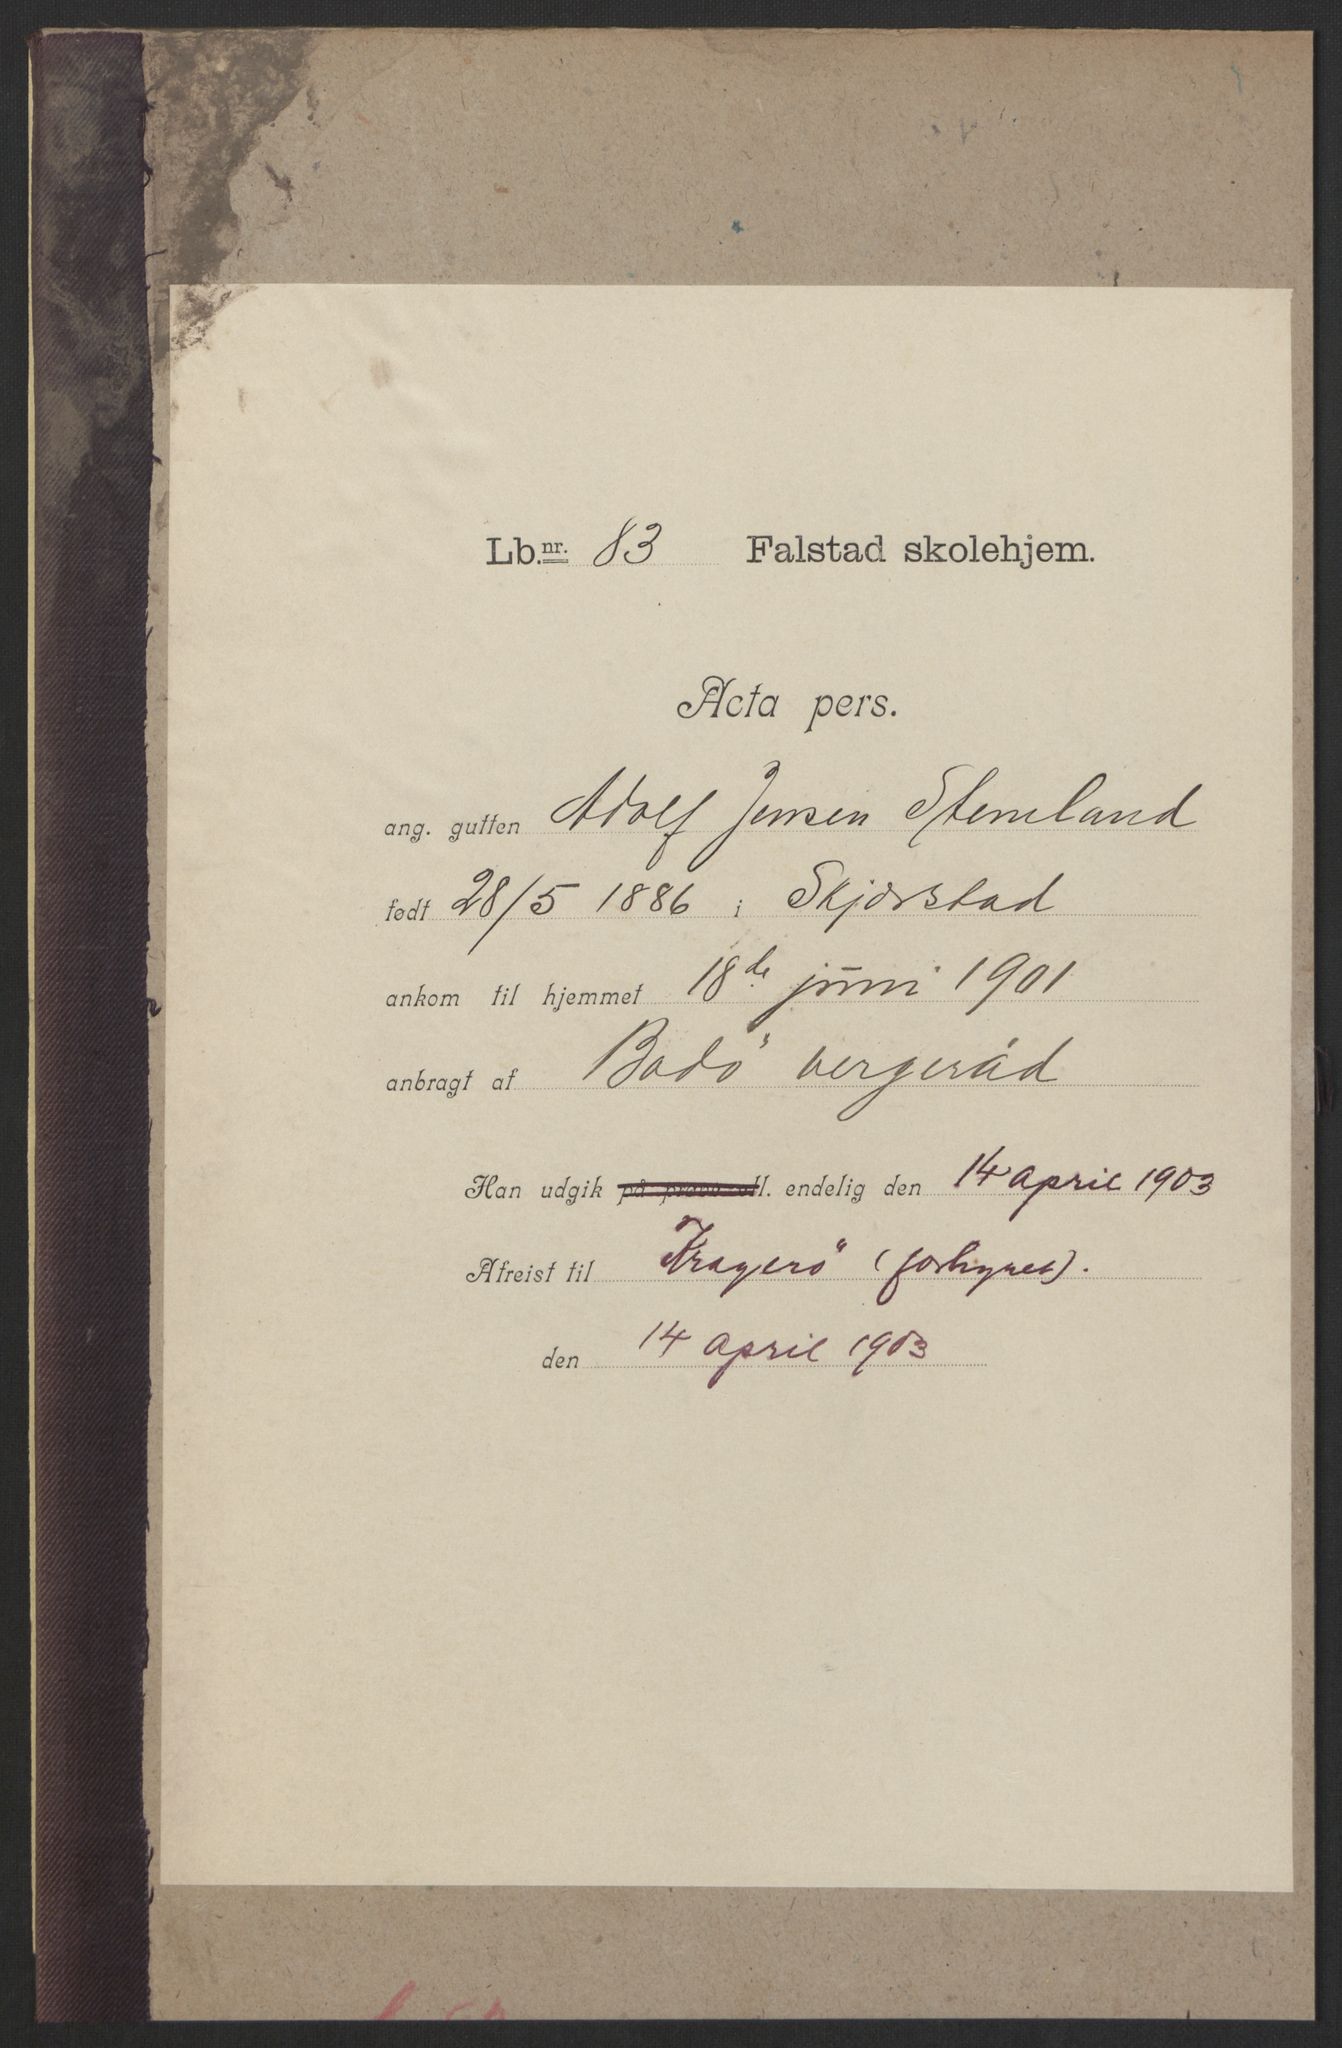 Lb.nr. 83 Falstad skolehjem.
Acta pers.
ang. gutten Adolf Jensen Stemland
født 28/5 1886 i Skjerstad
ankom til hjemmet 18de juni 1901
anbragt af Bodö vergeråd
Han udgik på prøve etl. endelig den 14 april 1903
Afreist til Kragerö (forhyret).
den 14 april 1903